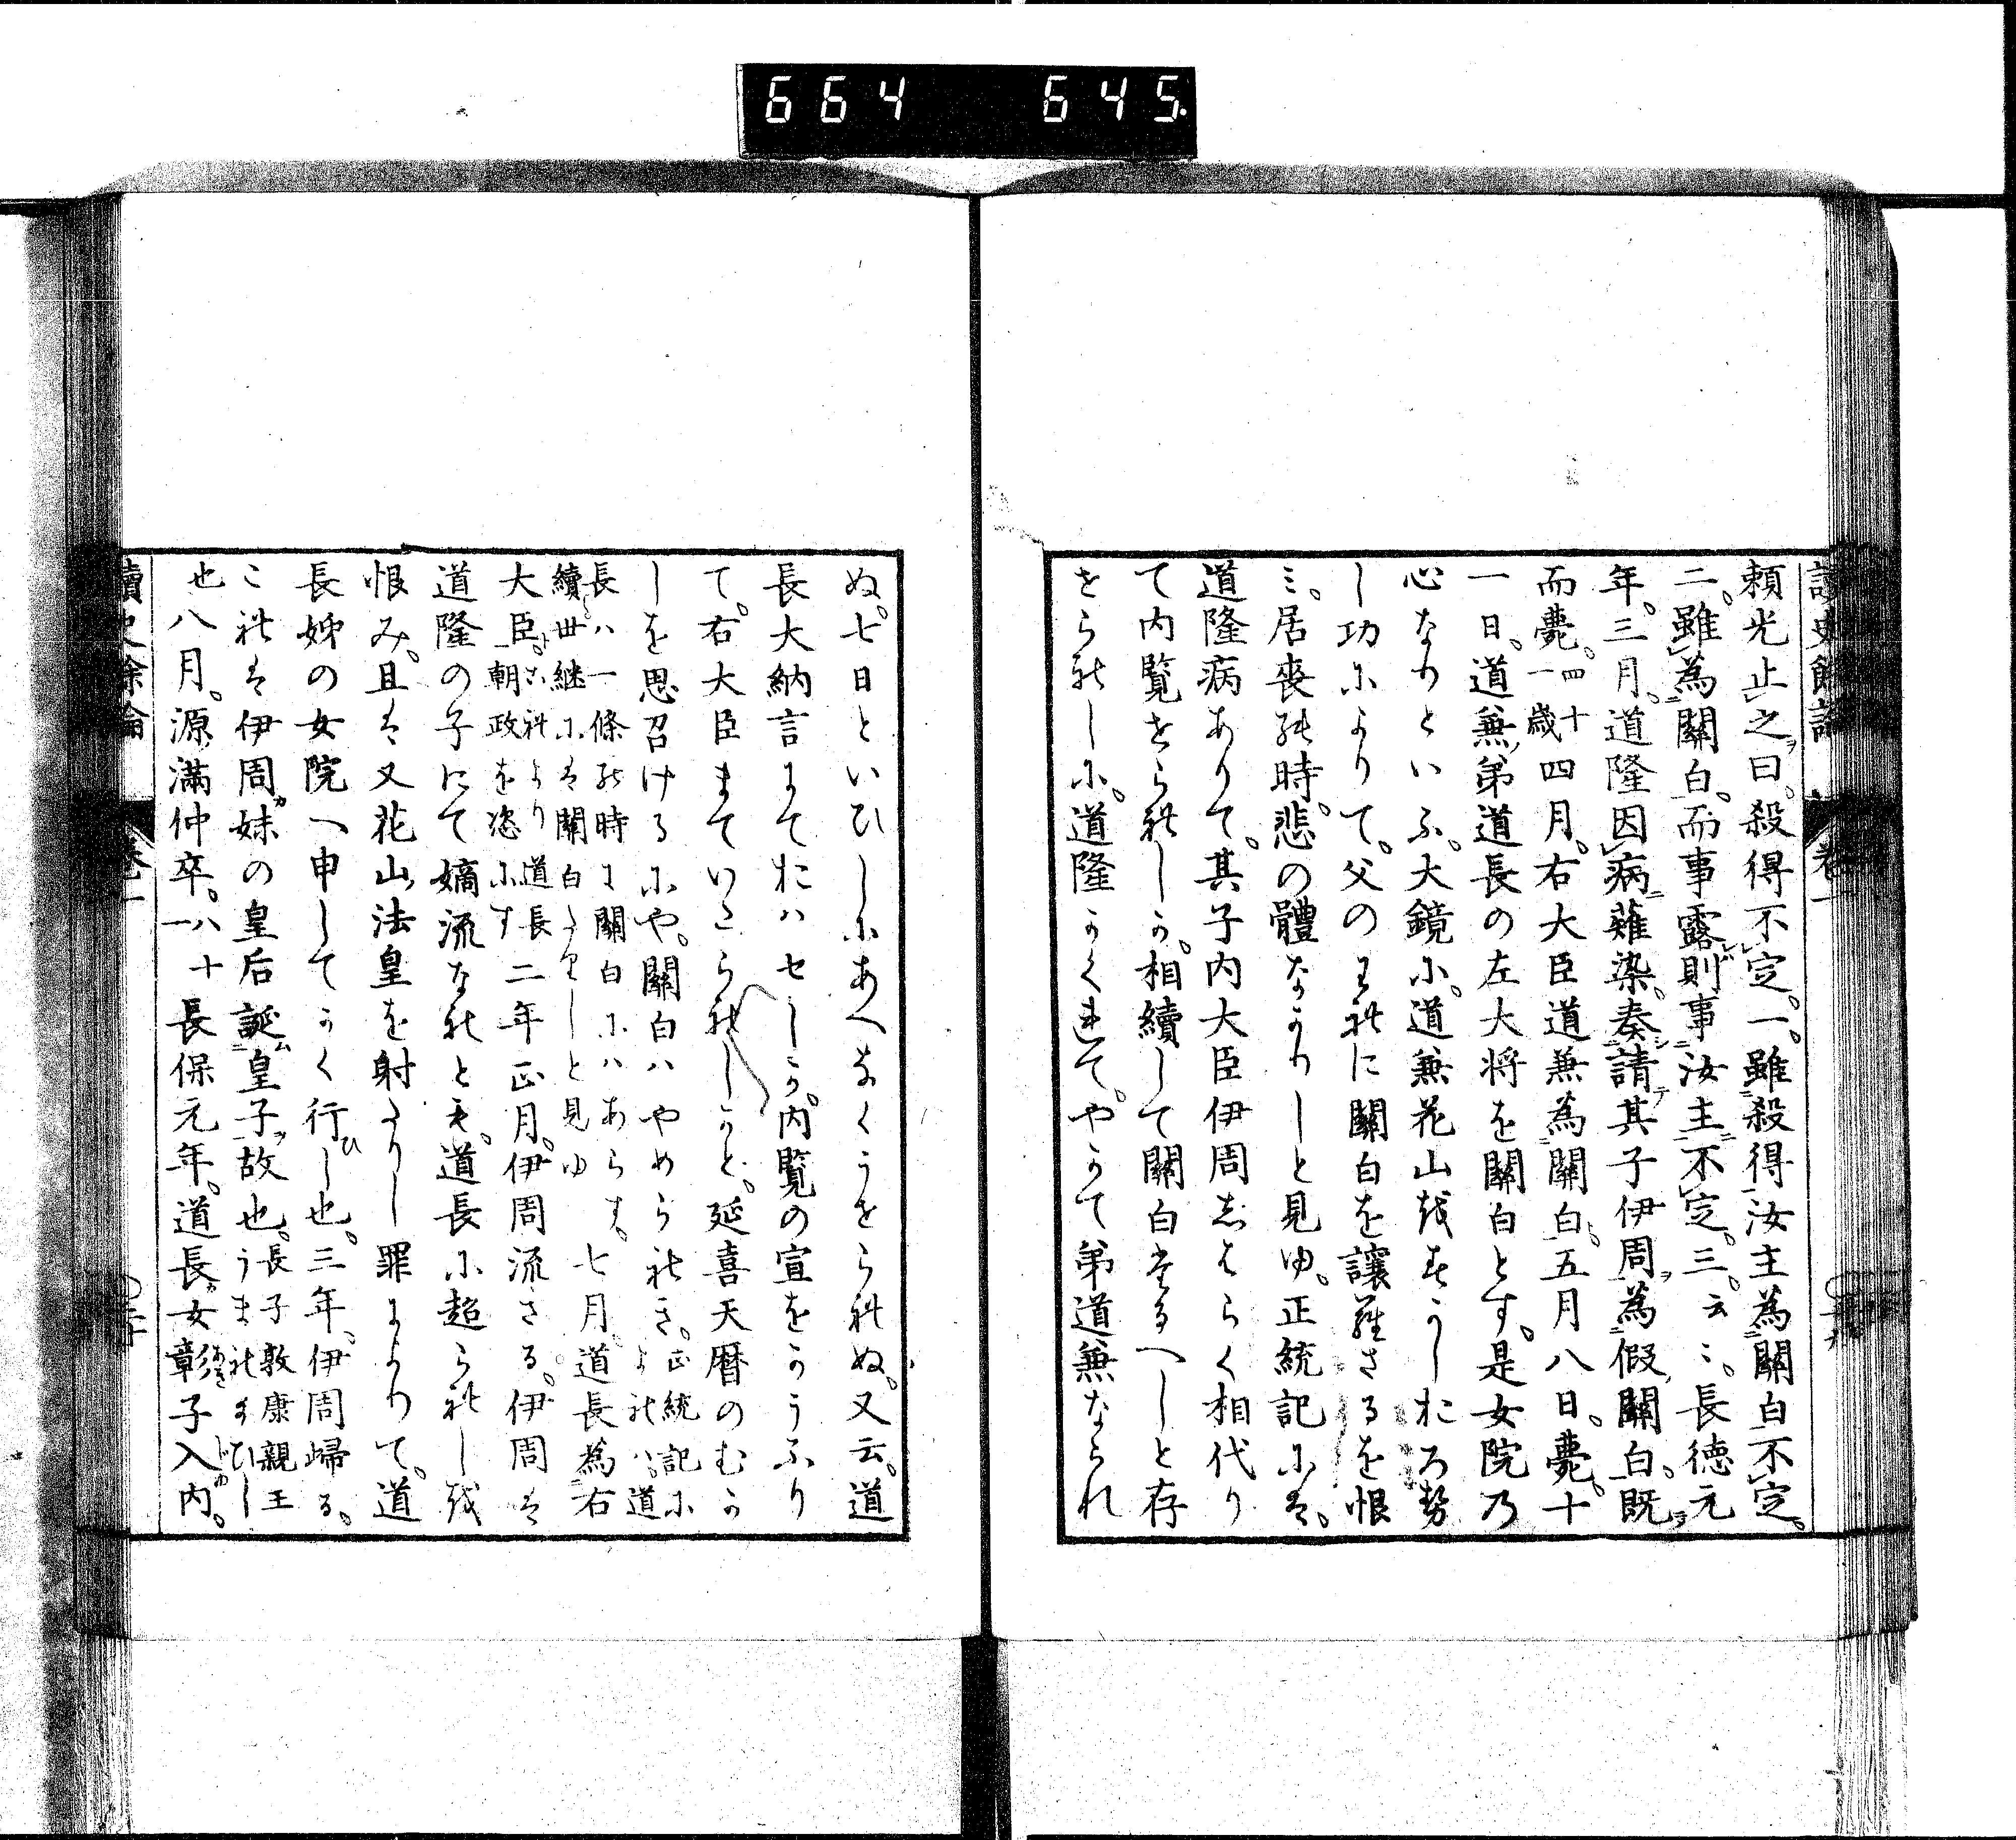 664 645
讀史餘論 卷一
頼光止之曰。殺得不定。一。雖殺得汝主為關白不定。
二。雖為關白。而事露則事汝主不定。三。云〻。長德元
年。三月。道隆因病薙染。奏請其子伊周為假關白。既
而薨。四十一歲四月。右大臣道兼為關白。五月八日。薨。十
一日。道兼弟道長の左大将を關白とす。是女院乃
心なりといふ。大鏡に。道兼花山越すかしおろ勢
し功によりて。父のわれに關白を讓羅さるを恨
ミ。居喪能時。悲の體なかりしと見ゆ。正統記には。
道隆病ありて。其子内大臣伊周志はらく相代り
て内覧せられしか。相續して關白堂るへしと存
せられしに。道隆かくれて。やかて弟道兼なられ
ぬ。七日といひしにあへなくうせられぬ。又云。道
長大納言にておハセしか。内覧の宣をかうふり
て。右大臣まていたられしかと。延喜天曆のむか
しを思召けるにや。關白ハやめられき。正統記に
よれハ。道長ハ一條能時に關白にハあらす。
續世継には關白たりしと見ゆ 七月道長為右
大臣。これより道長朝政を恣にす 二年正月。伊周流さる。伊周は
道隆の子にて嫡流なれとも。道長に超られし越
恨み。且は又花山法皇を射たりし罪によりて。道
長姊の女院へ申してかく行ひし也。三年。伊周歸る。
これは伊周妹の皇后誕皇子故也。長子敦康親王うまれまひし
也八月。源滿仲卒。八十一長保元年。道長女章子入内。
讀史餘論 卷一